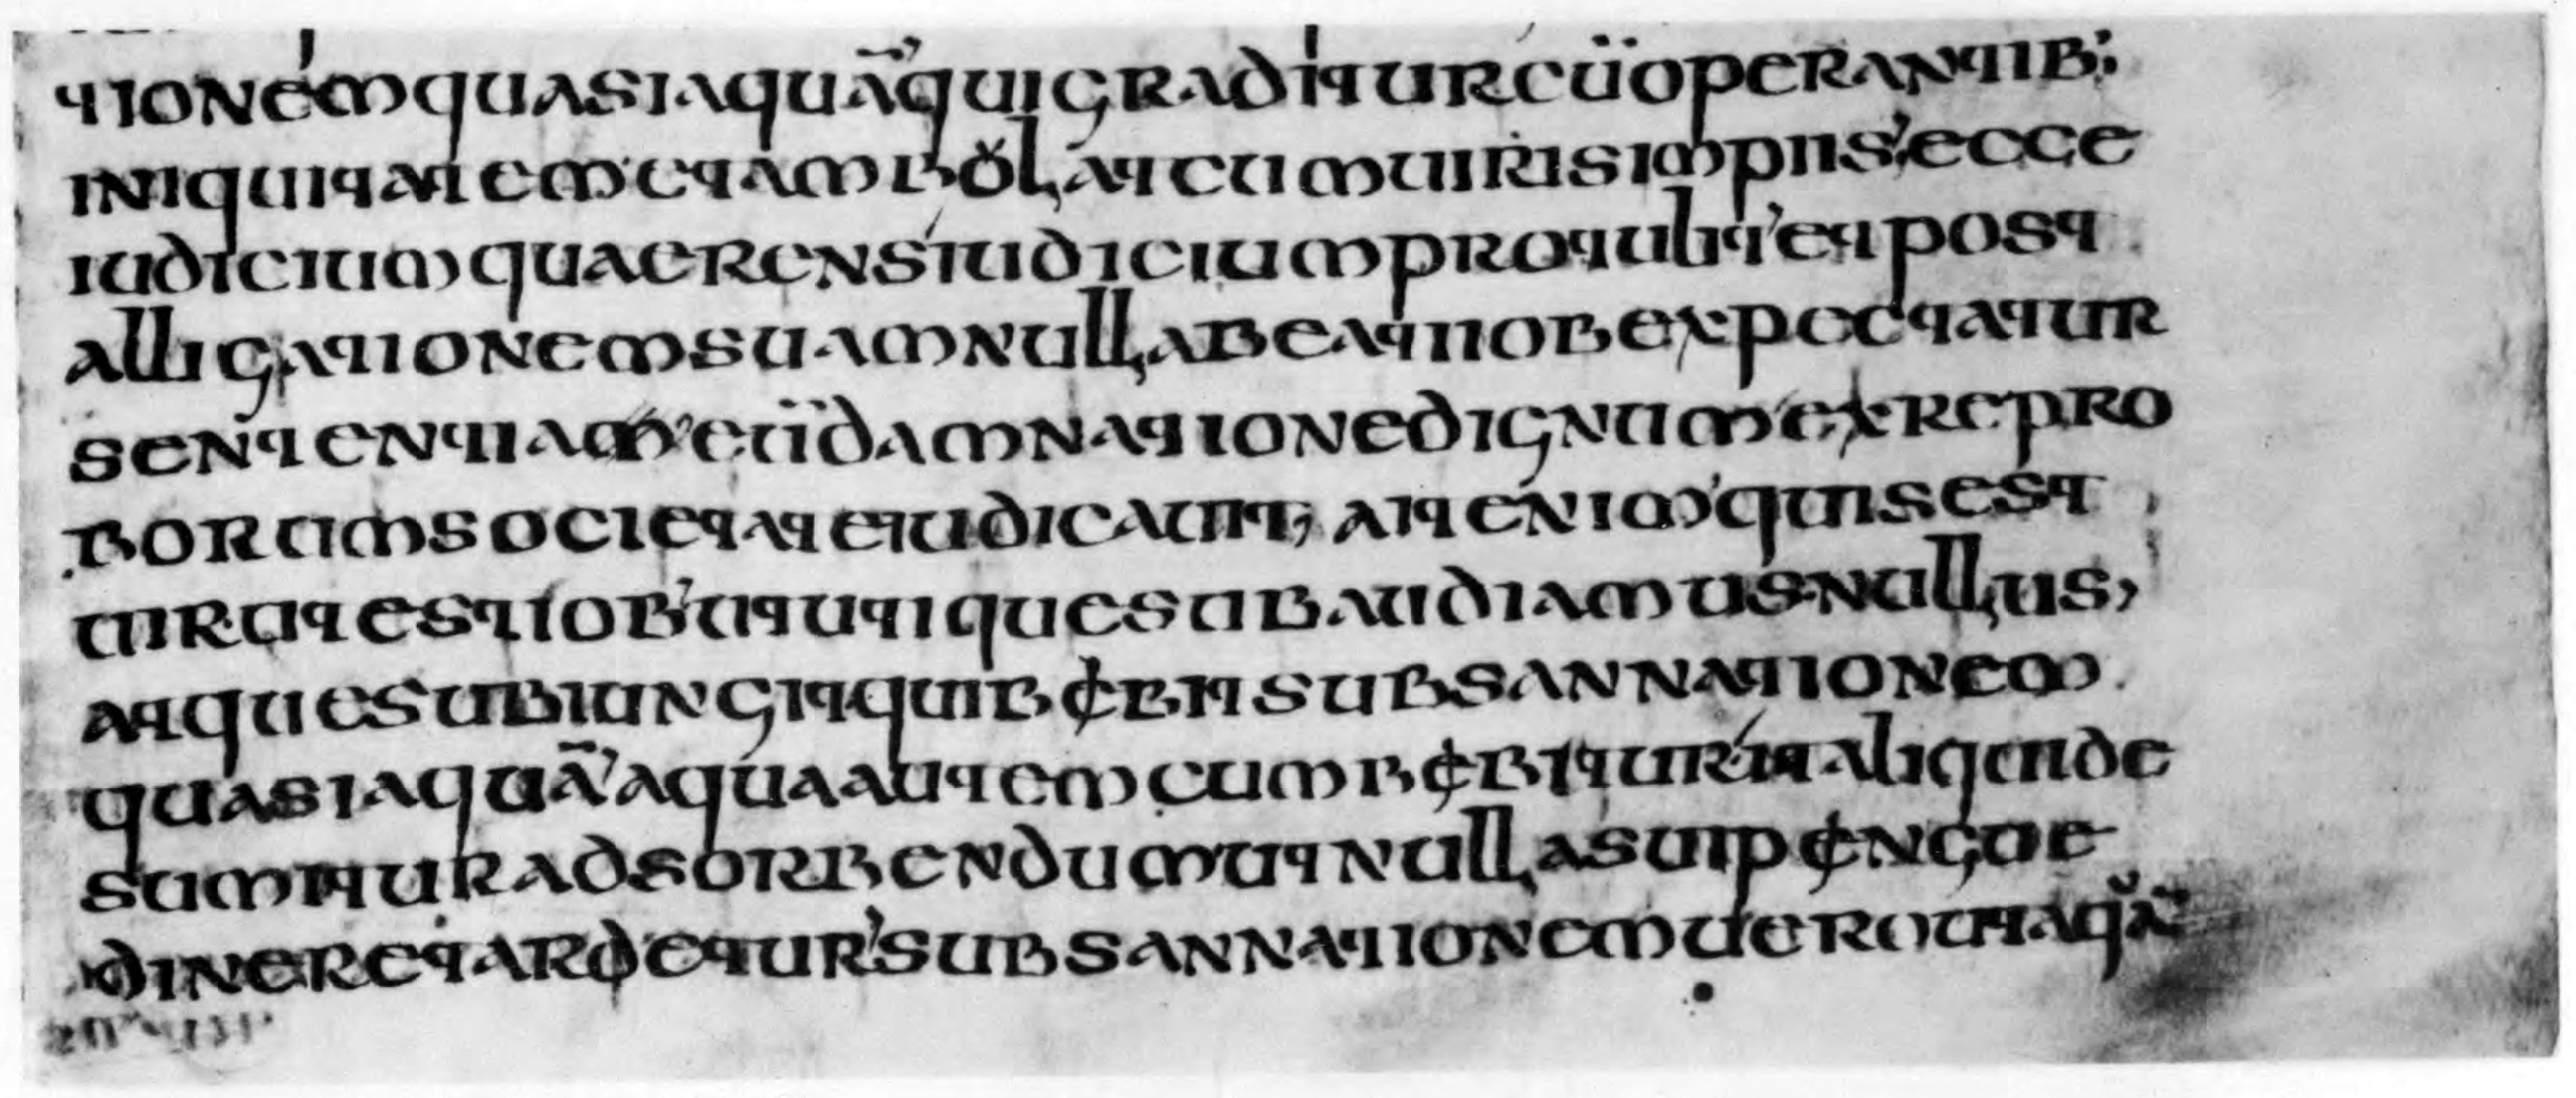 tionem quasi aquā qui graditur cū operantib;
iniquitatem et ambol,at cum uiris impiis ecce
iudicium quaerens iudicium protulit et post
alligationem suam null,a beati iob expectatur
sententiam et ü damnatione dignum et repro
borum societate iudicauit, ait enim quis est
uir ut est iob ut utique subaudiamus null,us,
atque subiungit qui bębit subsannationem
quasi aquā aqua autem cum bębitur ita liquide
sumitur ad sorbendum ut null,a suip ęngue
dine retardętur subsannationem uero ut aqā